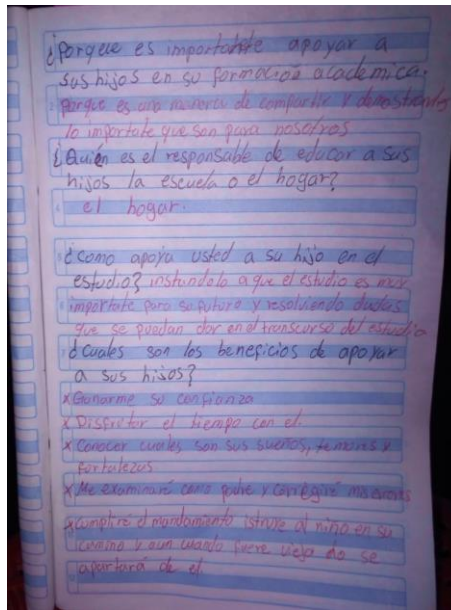 ¿Porque es importante apoyar a
sus hijos en su formacion academica.
porque es una manera de compartir y demostrandoles
lo importate que son para nosotros
¿Quién es el responsable de educar a sus
hijos la escuela o el hogar?
el hogar.
¿como apoya usted a su hijo en el
estudio? instandolo a que el estudio es muy
importate para su futuro y resolviendo dudas
que se puedan dar en el transcurso del estudio
¿Cuales son los beneficios de apoyar
a sus hijos?
x Ganarme su confianza
x Disfrutar el tiempo con el.
x Conocer cuales son sus sueños, temores y
fortalezas
x Me examinaré como padre y corregiré mis errores
x cumpliré el mandamiento istruye al niño en su
camino y aun cuando fuere viejo no se
apartará de el.